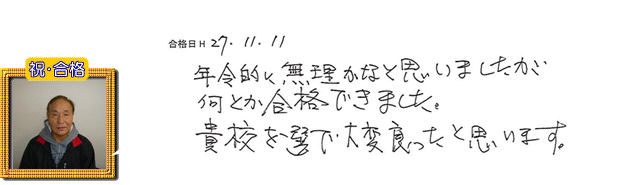 合格日H 27.11.11
祝・合格
年令的に無理かなと思いましたが
何とか合格できました。
貴校を選で大変良ったと思います。